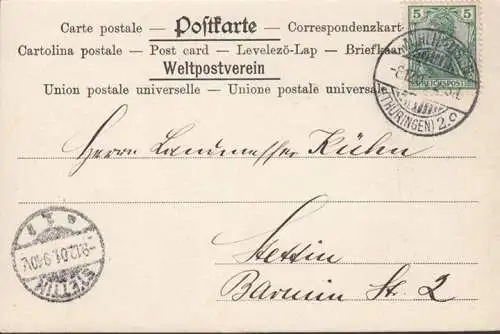 Carte postale – Postkarte – Correspondenzkart
Cartolina postale – Post card – Levelező-Lap – Briefkaar
Weltpostverein
Union postale universelle – Unione postale universale
5 5
REICHSPOST
(THÜRINGEN) 2.
Herrn Landmesser Kühn
Stettin
Barnim Str. 2
STETTIN
-9.12.01.9-10V.